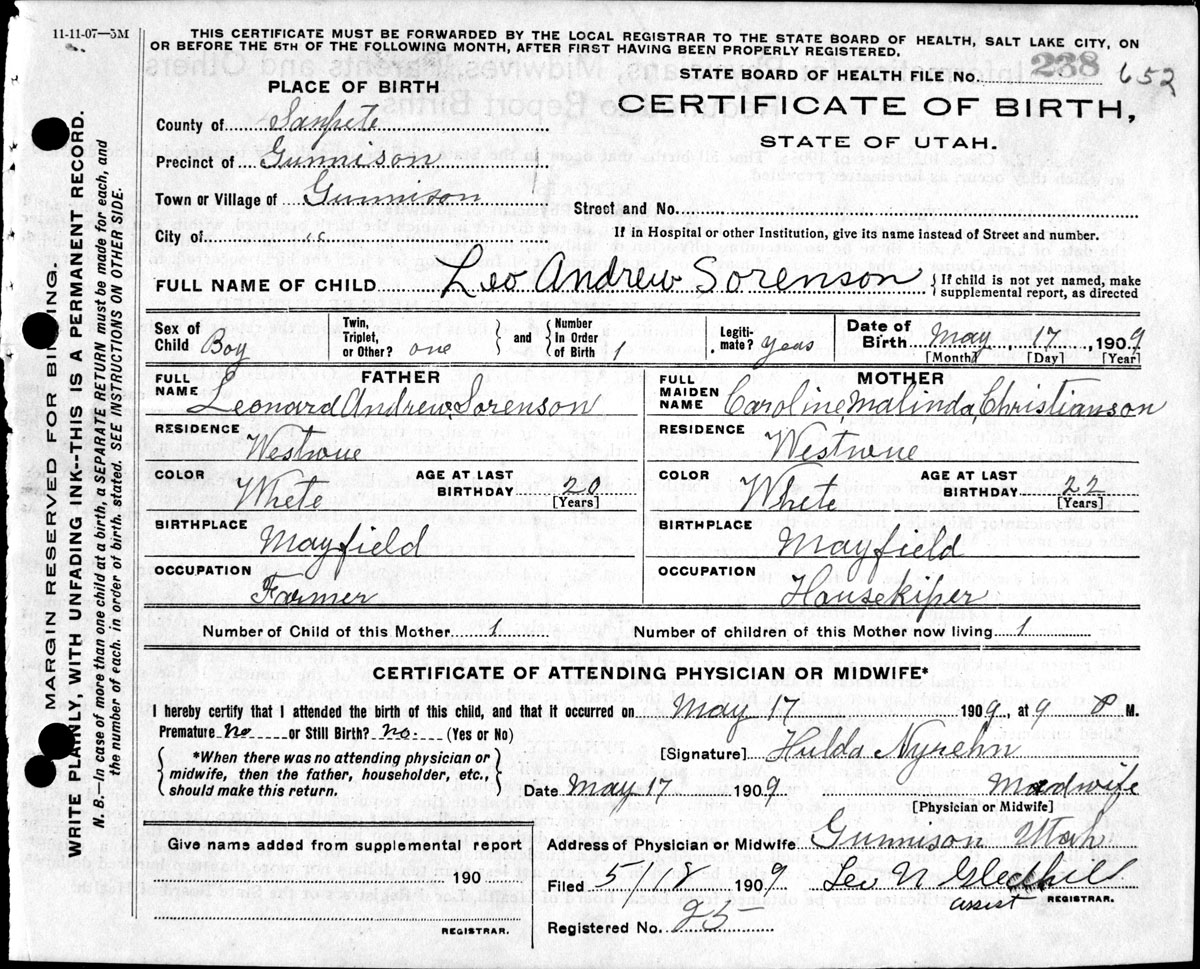 11-11-07—5M
THIS CERTIFICATE MUST BE FORWARDED BY THE LOCAL REGISTRAR TO THE STATE BOARD OF HEALTH, SALT LAKE CITY, ON
OR BEFORE THE 5TH OF THE FOLLOWING MONTH, AFTER FIRST HAVING BEEN PROPERLY REGISTERED.
STATE BOARD OF HEALTH FILE No. 238 652
PLACE OF BIRTH
CERTIFICATE OF BIRTH,
STATE OF UTAH.
County of Sanpete
Precinct of Gunnison
Town or Village of Gunnison
Street and No.
City of "
If in Hospital or other Institution, give its name instead of Street and number.
FULL NAME OF CHILD Leo Andrew Sorenson { If child is not yet named, make
supplemental report, as directed
Sex of Child Boy
Twin, Triplet, or Other? one } and { Number In Order of Birth 1
Legiti-mate? yeas
Date of Birth May 17, 1909
[Month] [Day] [Year]
FATHER
FULL NAME Leonard Andrew Sorenson
RESIDENCE
COLOR White
AGE AT LAST BIRTHDAY 20 [Years]
BIRTHPLACE Mayfield
OCCUPATION Farmer
MOTHER
FULL MAIDEN NAME Caroline, Malinda, Christianson
RESIDENCE
COLOR White
AGE AT LAST BIRTHDAY 22 [Years]
BIRTHPLACE Mayfield
OCCUPATION Housekiper
Number of Child of this Mother 1
Number of children of this Mother now living 1
CERTIFICATE OF ATTENDING PHYSICIAN OR MIDWIFE*
I hereby certify that I attended the birth of this child, and that it occurred on May 17 1909, at 9 P M.
Premature no or Still Birth? no. (Yes or No)
[Signature] Hulda Nyrehn
{ *When there was no attending physician or
midwife, then the father, householder, etc.,
should make this return. }
Date May 17 1909. Madwife
[Physician or Midwife]
Give name added from supplemental report
190
REGISTRAR.
Address of Physician or Midwife Gunnison Utah
Filed 5/18 1909 Leo N
assist REGISTRAR.
Registered No. 25
MARGIN RESERVED FOR BINDING.
WRITE PLAINLY, WITH UNFADING INK--THIS IS A PERMANENT RECORD.
N. B.—In case of more than one child at a birth, a SEPARATE RETURN must be made for each, and
the number of each. in order of birth. stated. SEE INSTRUCTIONS ON OTHER SIDE.